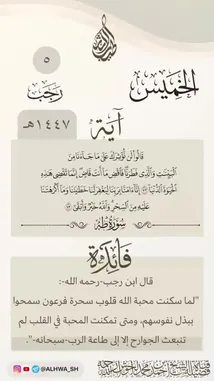 ٥
الخميس
رجب
١٤٤٧هـ
آية
قَالُوا لَن نُّؤْثِرَكَ عَلَىٰ مَا جَاءَنَا مِنَ
الْبَيِّنَاتِ وَالَّذِي فَطَرَنَا فَاقْضِ مَا أَنتَ قَاضٍ إِنَّمَا تَقْضِي هَٰذِهِ
الْحَيَاةَ الدُّنْيَا ۝ إِنَّا آمَنَّا بِرَبِّنَا لِيَغْفِرَ لَنَا خَطَايَانَا وَمَا أَكْرَهْتَنَا
عَلَيْهِ مِنَ السِّحْرِ وَاللَّهُ خَيْرٌ وَأَبْقَىٰ ۝
سورة طه
فائدة
قال ابن رجب-رحمه الله-:
"لما سكنت محبة الله قلوب سحرة فرعون سمحوا
ببذل نفوسهم، ومتى تمكنت المحبة في القلب لم
تنبعث الجوارح إلا إلى طاعة الرب-سبحانه-".
@ALHWA_SH